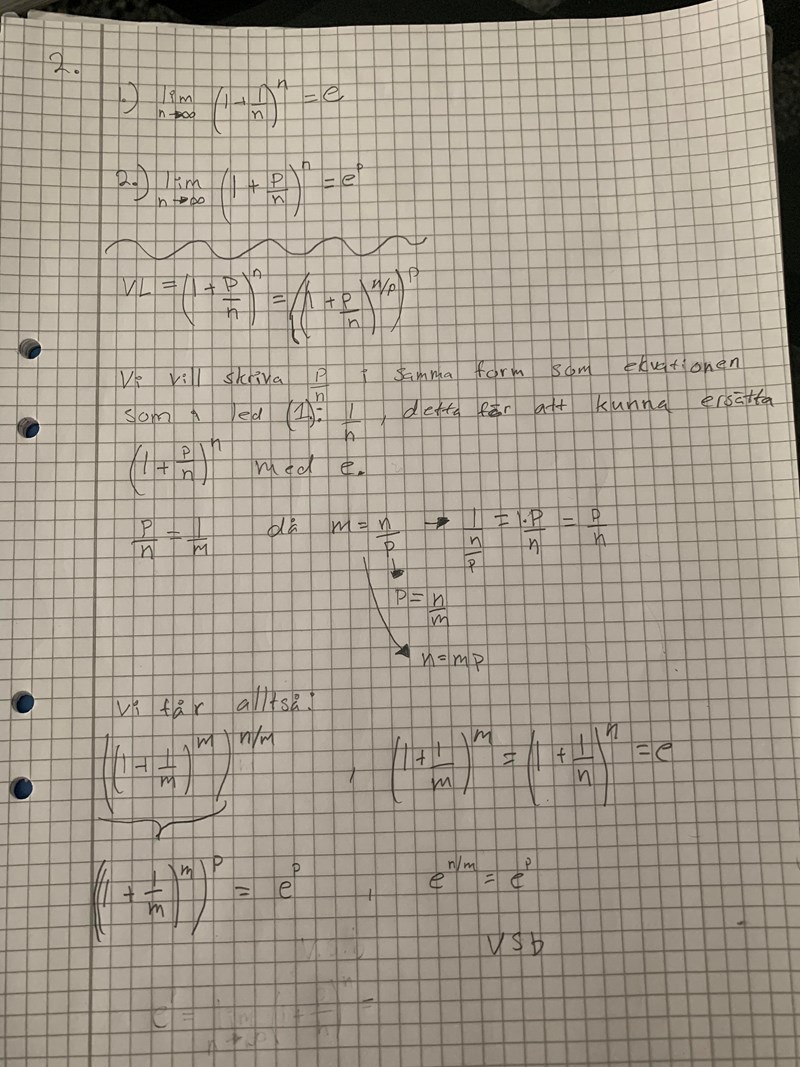 2.
1.) lim n→∞ (1+1/n)^n = e
2.) lim n→∞ (1 + p/n)^n = e^p
VL = (1+p/n)^n = ((1+p/n)^(n/p))^p
Vi vill skriva p/n i samma form som ekvationen
som i led (1): 1/n, detta för att kunna ersätta
(1+p/n)^n med e.
p/n = 1/m då m = n/p → 1/(n/p) = 1·p/n = p/n
p = n/m
n = mp
Vi får alltså:
((1+1/m)^m)^(n/m) , (1+1/m)^m = (1+1/n)^n = e
((1+1/m)^m)^p = e^p , e^(n/m) = e^p
VSB